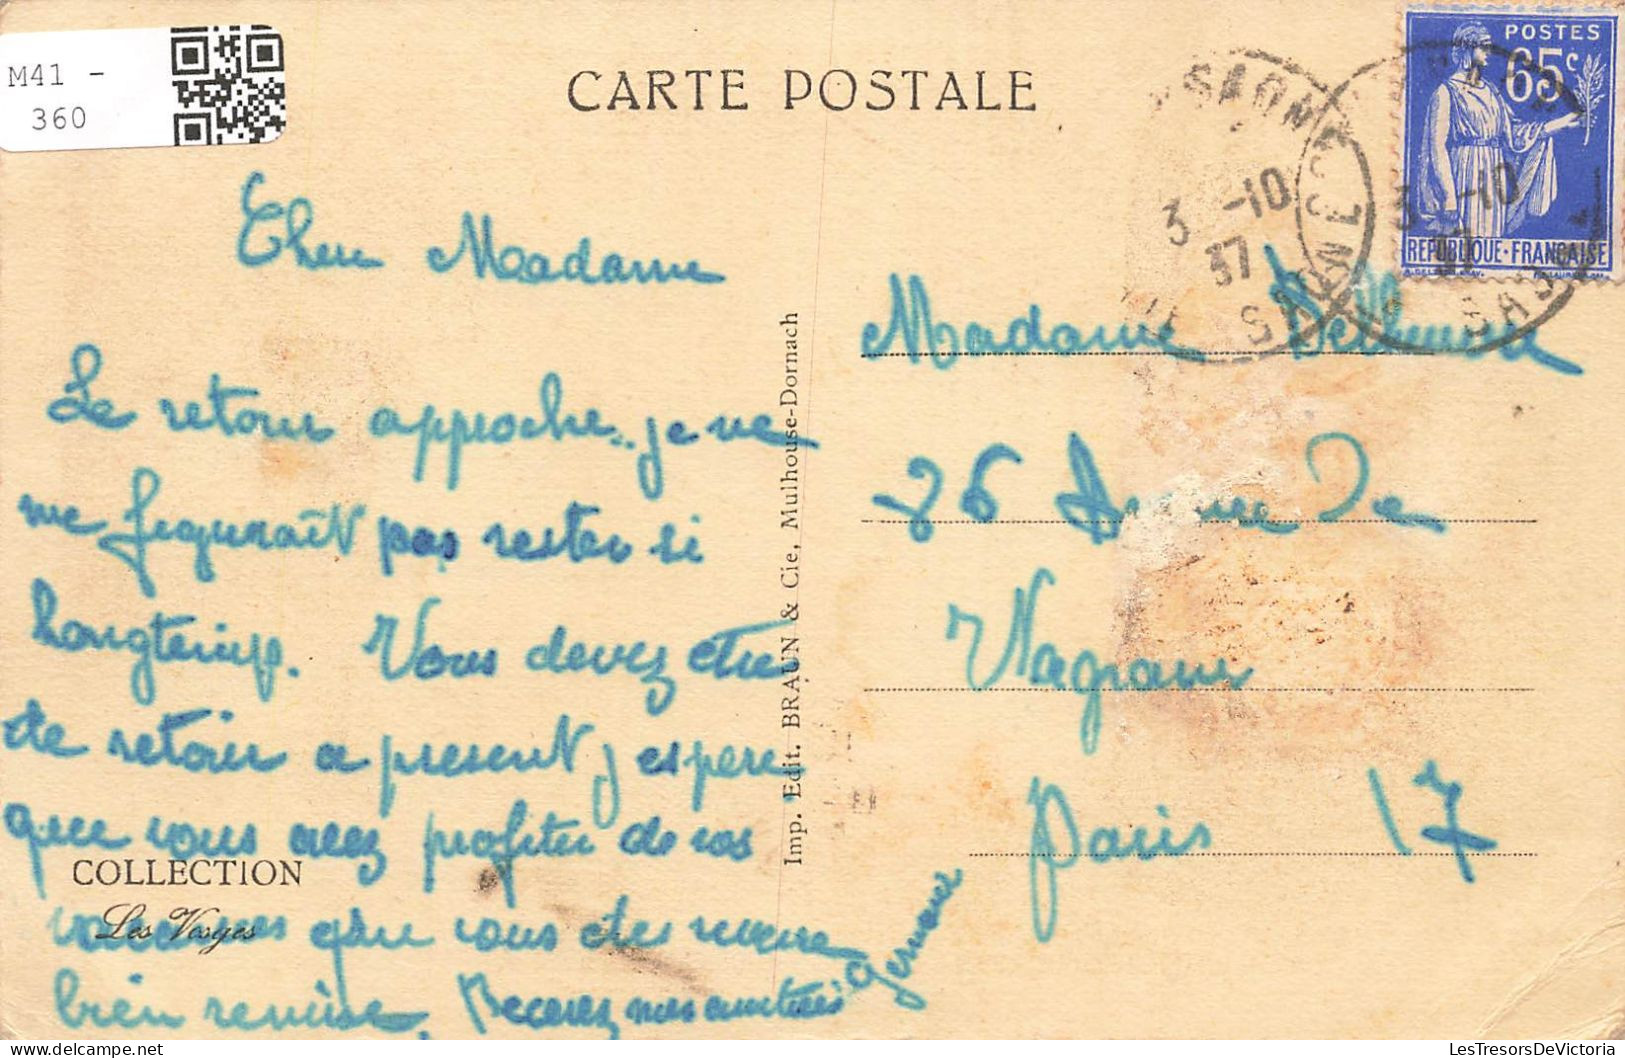 M41 -
360
CARTE POSTALE
POSTES
65c
REPUBLIQUE-FRANCAISE
3 -10
37
3 -10
37
Cher Madame
Le retour approche.. je ne
me figurait pas rester si
longtemps. Vous devez etre
de retour a present, j espere
que vous avez profiter de vos
vacances que vous etes revenue
bien remise. Recevez mes amitiés
Germaine
COLLECTION
Les Vosges
Imp. Edit. BRAUN & Cie, Mulhouse-Dornach
Madame
86 Avenue De
Wagram
Paris 17
LesTresorsDeVictoria